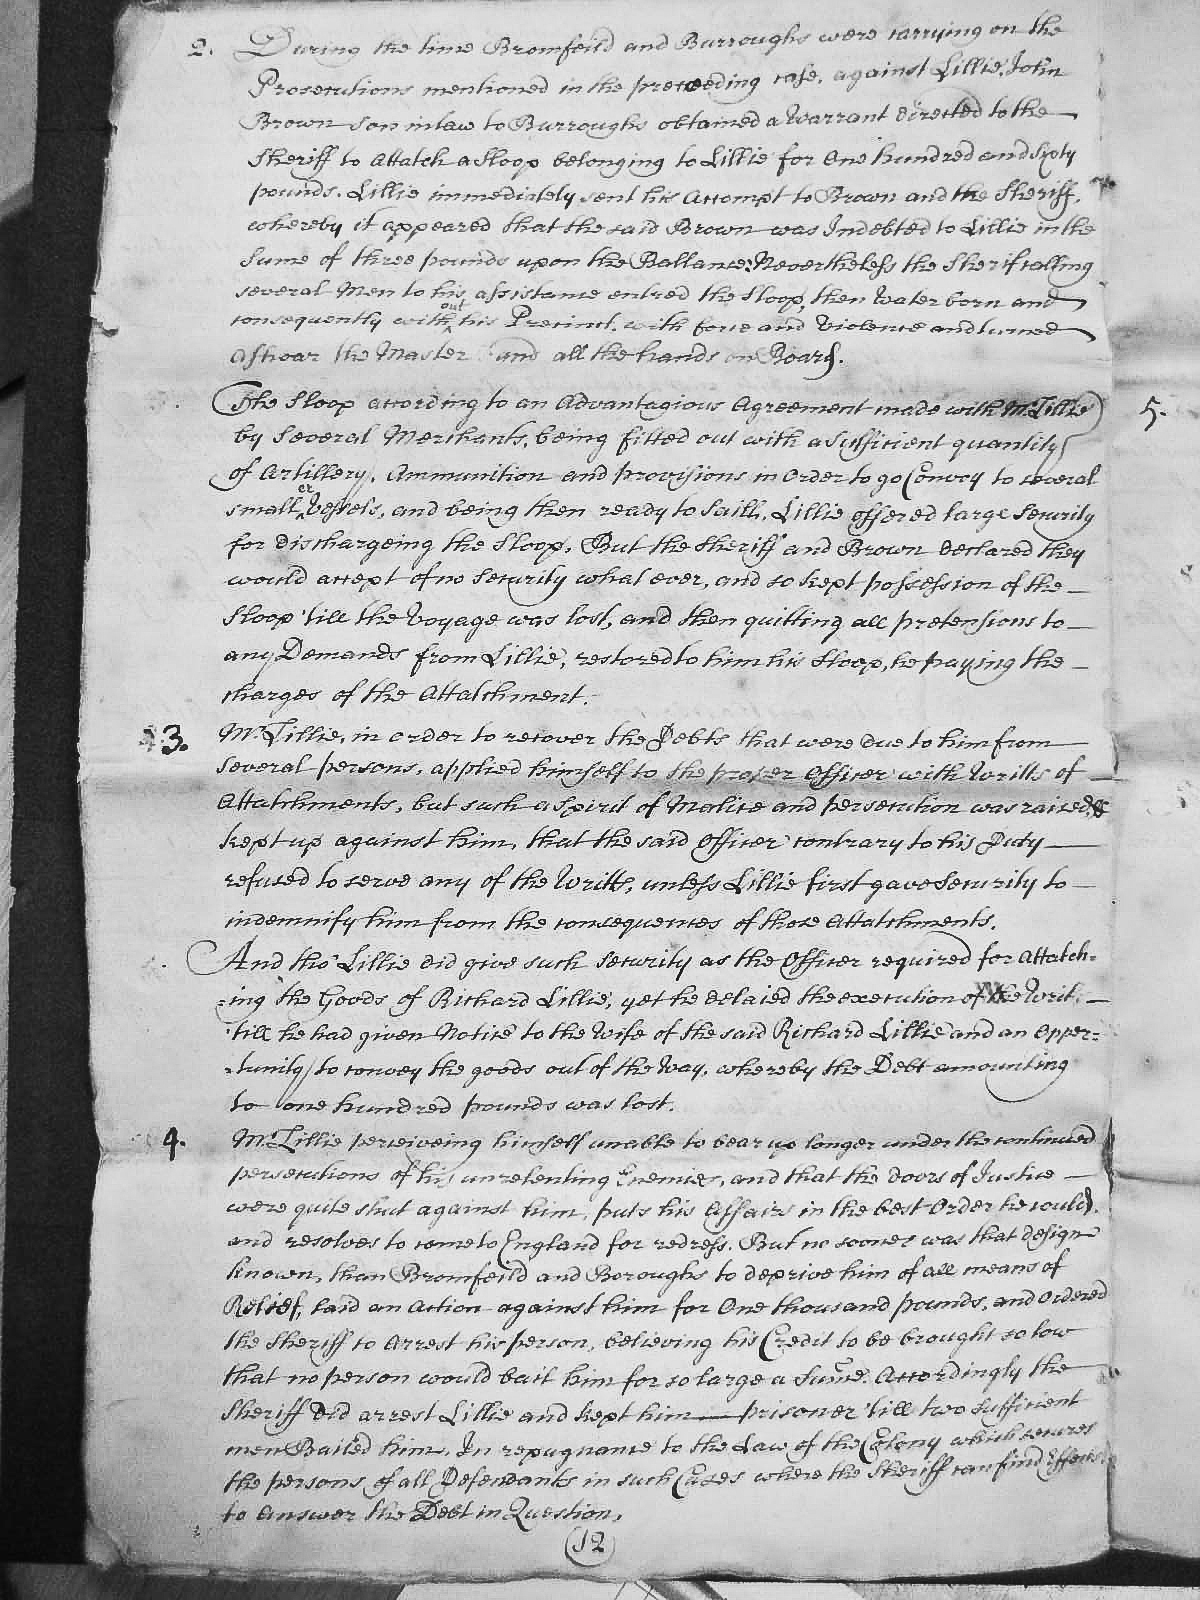 2. During the time Bromfeild and Burroughs were carrying on the
Prosecutions mentioned in the preceeding case, against Lillie, John
Brown son in law to Burroughs obtained a Warrant directed to the
Sheriff to Attatch a Sloop belonging to Lillie for One hundred and Sixty
pounds. Lillie immediately sent his Accompt to Brown and the Sheriff,
whereby it appeared that the said Brown was Indebted to Lillie in the
Sume of three pounds upon the Ballance: Nevertheless the Sherif calling
several Men to his assistance entred the Sloop, then Water born and
consequently without his Precinct, with force and Violence and turned
ashoar the Master and all the hands on Board.
The Sloop according to an Advantagious Agreement made with Mr. Lillie
by Several Merchants, being fitted out with a sufficient quantity
of Artillery, Ammunition and provisions in Order to go Convoy to several
smaller Vessels, and being then ready to Saill, Lillie offered large Security
for dischargeing the Sloop, But the Sheriff and Brown declared they
would accept of no Security what ever, and so kept possession of the
Sloop 'till the Voyage was lost, and then quitting all pretensions to
any Demands from Lillie, restored to him his Sloop, he paying the
charges of the Attatchment.
3. Mr. Lillie, in order to recover the Debts that were due to him from
several persons, applied himself to the proper Officer with Writts of
Attatchments, but such a spirit of Malice and persecution was raised, &
kept up against him, that the said Officer contrary to his Duty
refused to serve any of the Writts, unless Lillie first gave Security to
indemnify him from the consequences of those Attatchments.
And tho' Lillie did give such Security as the Officer required for Attatch=
=ing the Goods of Richard Lillie, yet he delaied the execution of the Writ,
'till he had given Notice to the Wife of the said Richard Lillie and an Opper=
=tunity to convey the goods out of the Way, whereby the Debt amounting
to one hundred pounds was lost.
4. Mr. Lillie perceiveing himself unable to bear up longer under the continued
persecutions of his unrelenting Enemies, and that the doors of Justice
were quite shut against him, puts his Affairs in the best Order he could,
and resolves to come to England for redress. But no sooner was that design
known, than Bromfeild and Boroughs to deprive him of all means of
Relief, laid an Action against him for One thousand pounds, and Ordered
the Sheriff to Arrest his person, believing his Credit to be brought so low
that no person would bail him for so large a Sume. Accordingly the
Sheriff did arrest Lillie and kept him prisoner 'till two sufficient
men Bailed him, In repugnance to the Law of the Colony which secures
the persons of all Defendants in such Cases where the Sheriff can find Effects
to Answer the Debt in Question.
12
5.